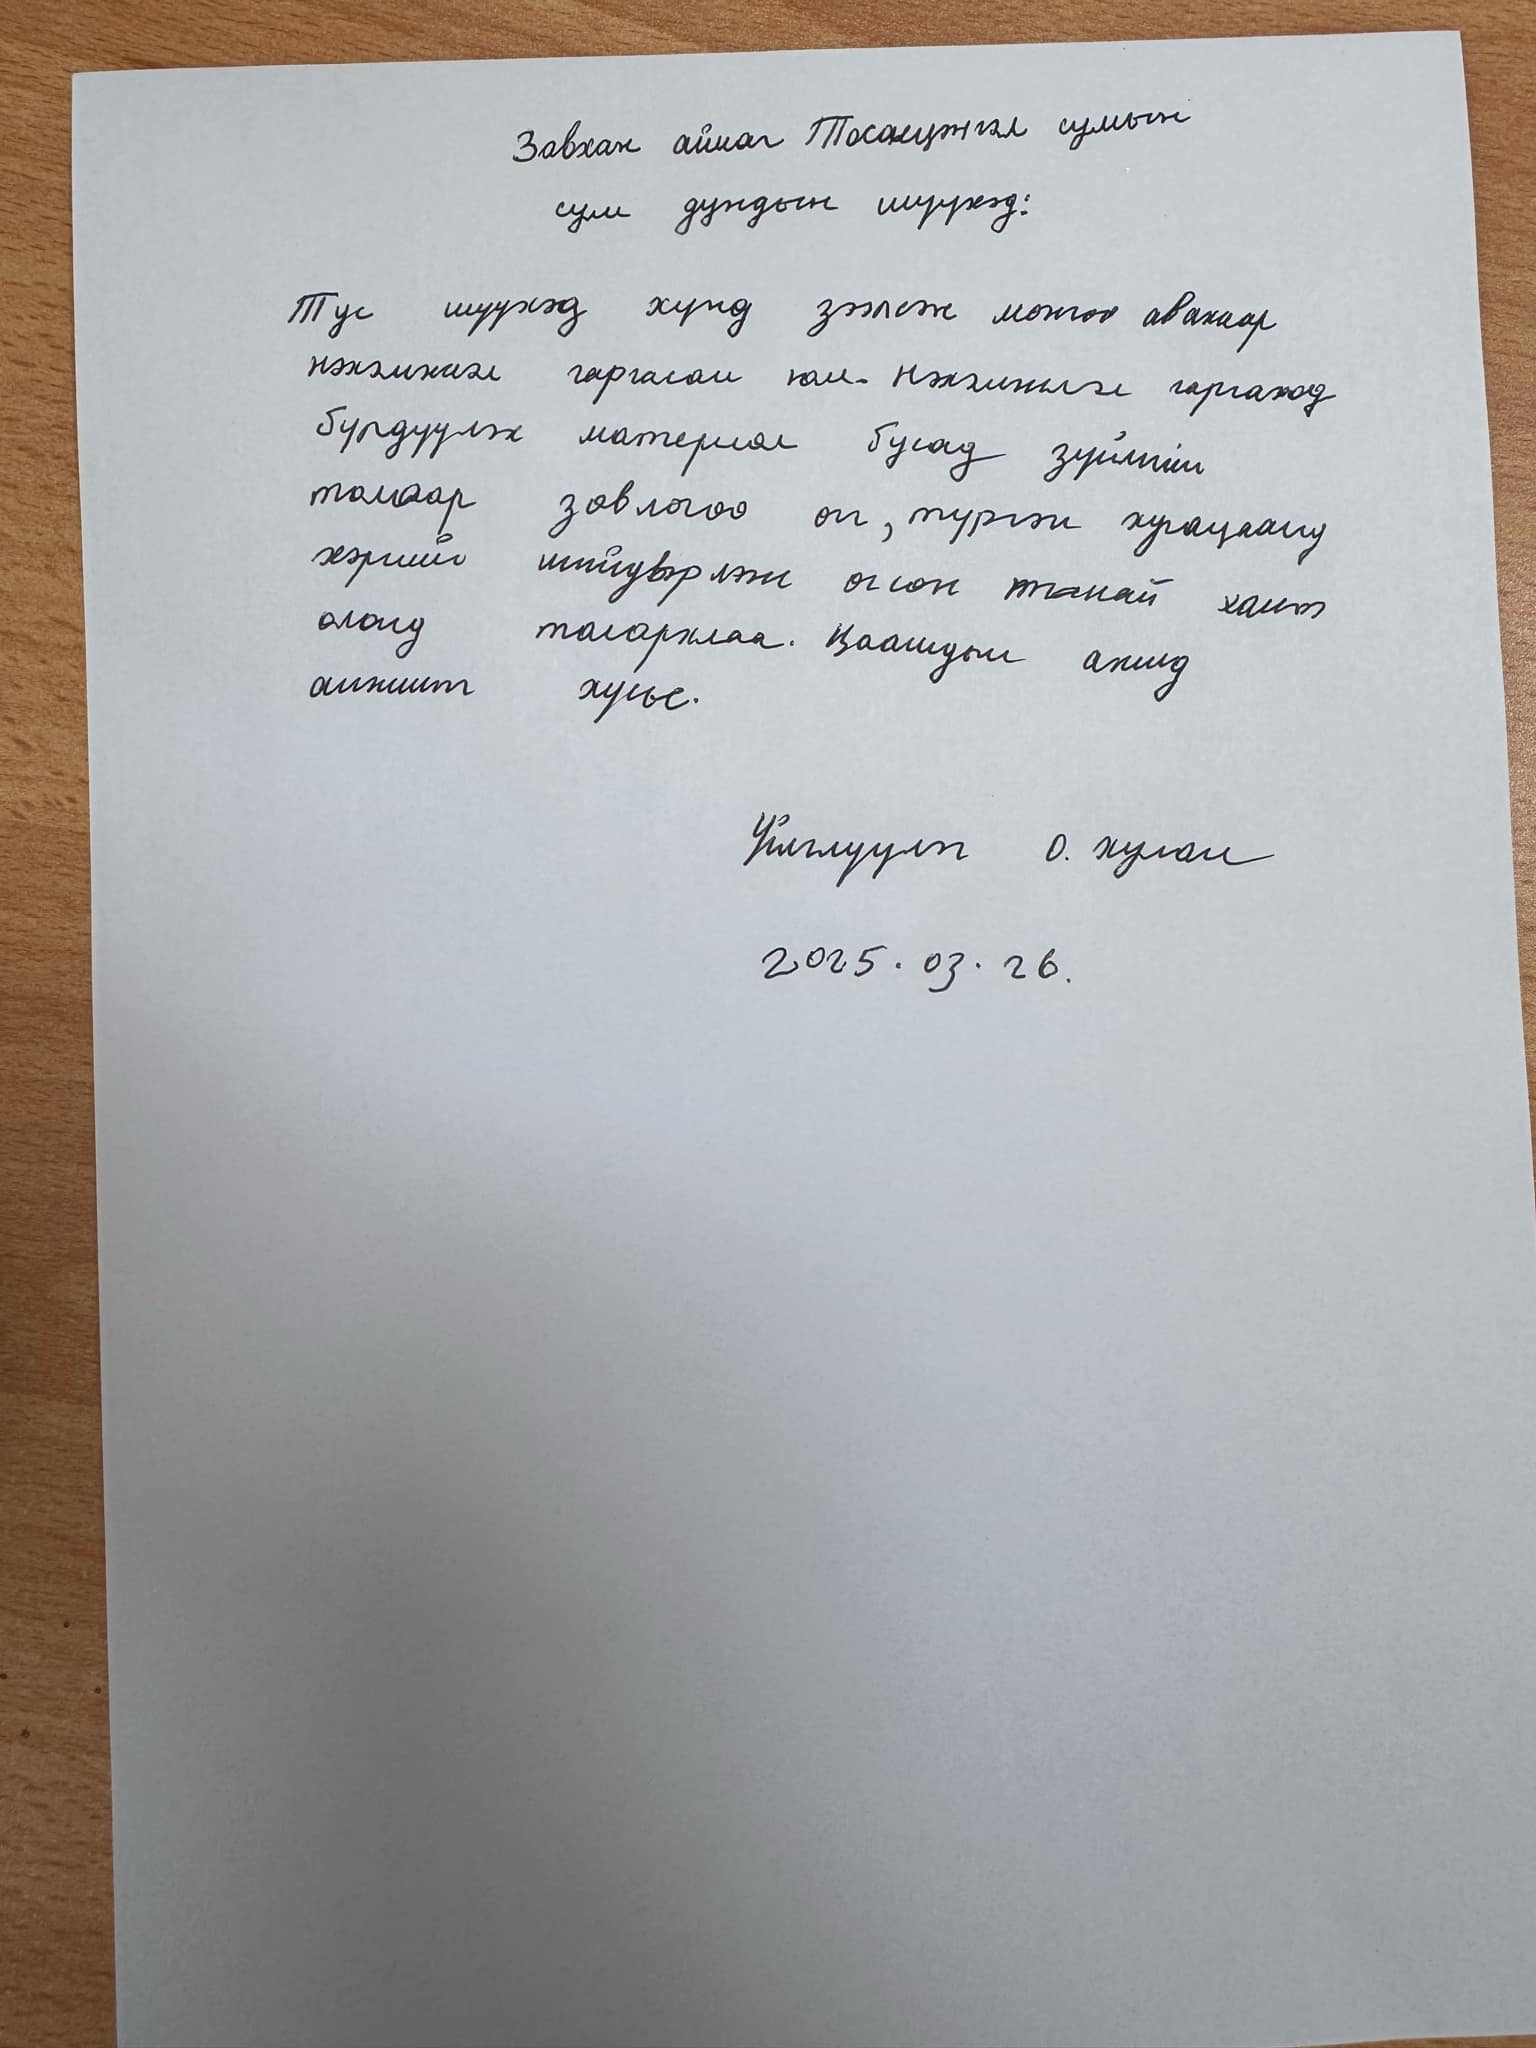 Завхан аймаг Тосонцэнгэл сумын
сум дундын шүүхэд:
Тус шүүхэд хүнд зээлсэн мөнгөө авахаар
нэхэмжлэл гаргасан юм. Нэхэмжлэл гаргахад
бүрдүүлэх материал бусад зүйлийн
талаар зөвлөгөө өг, түргэн хугацаанд
хэргийг шийдвэрлэж өгсөн танай хамт
олонд талархлаа. Цаашдын ажилд
амжилт хүсье.
Үйлчлүүлэгч О. Хулан
2025.03.26.